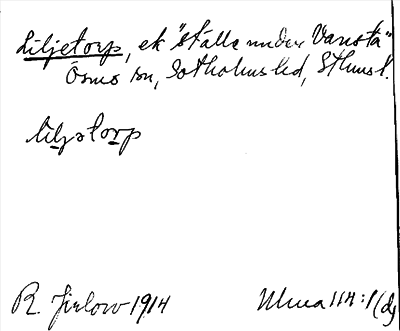 Liljetorp, ek "ställe under Vansta"
Ösmo sn, Sotholms hd, Sthms l.
liljətorp
R. Jirlow 1914 Muca 114:1(d)